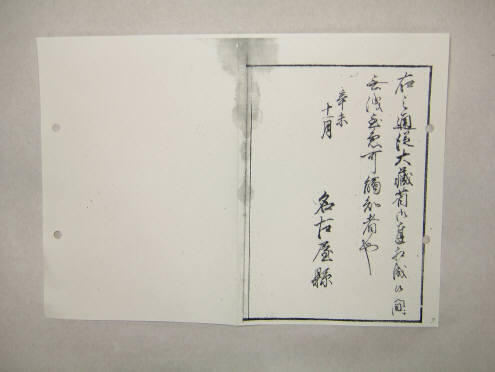 右之通従大蔵省御達相成候間
無洩至急可触知者也
辛未
十一月
名古屋縣